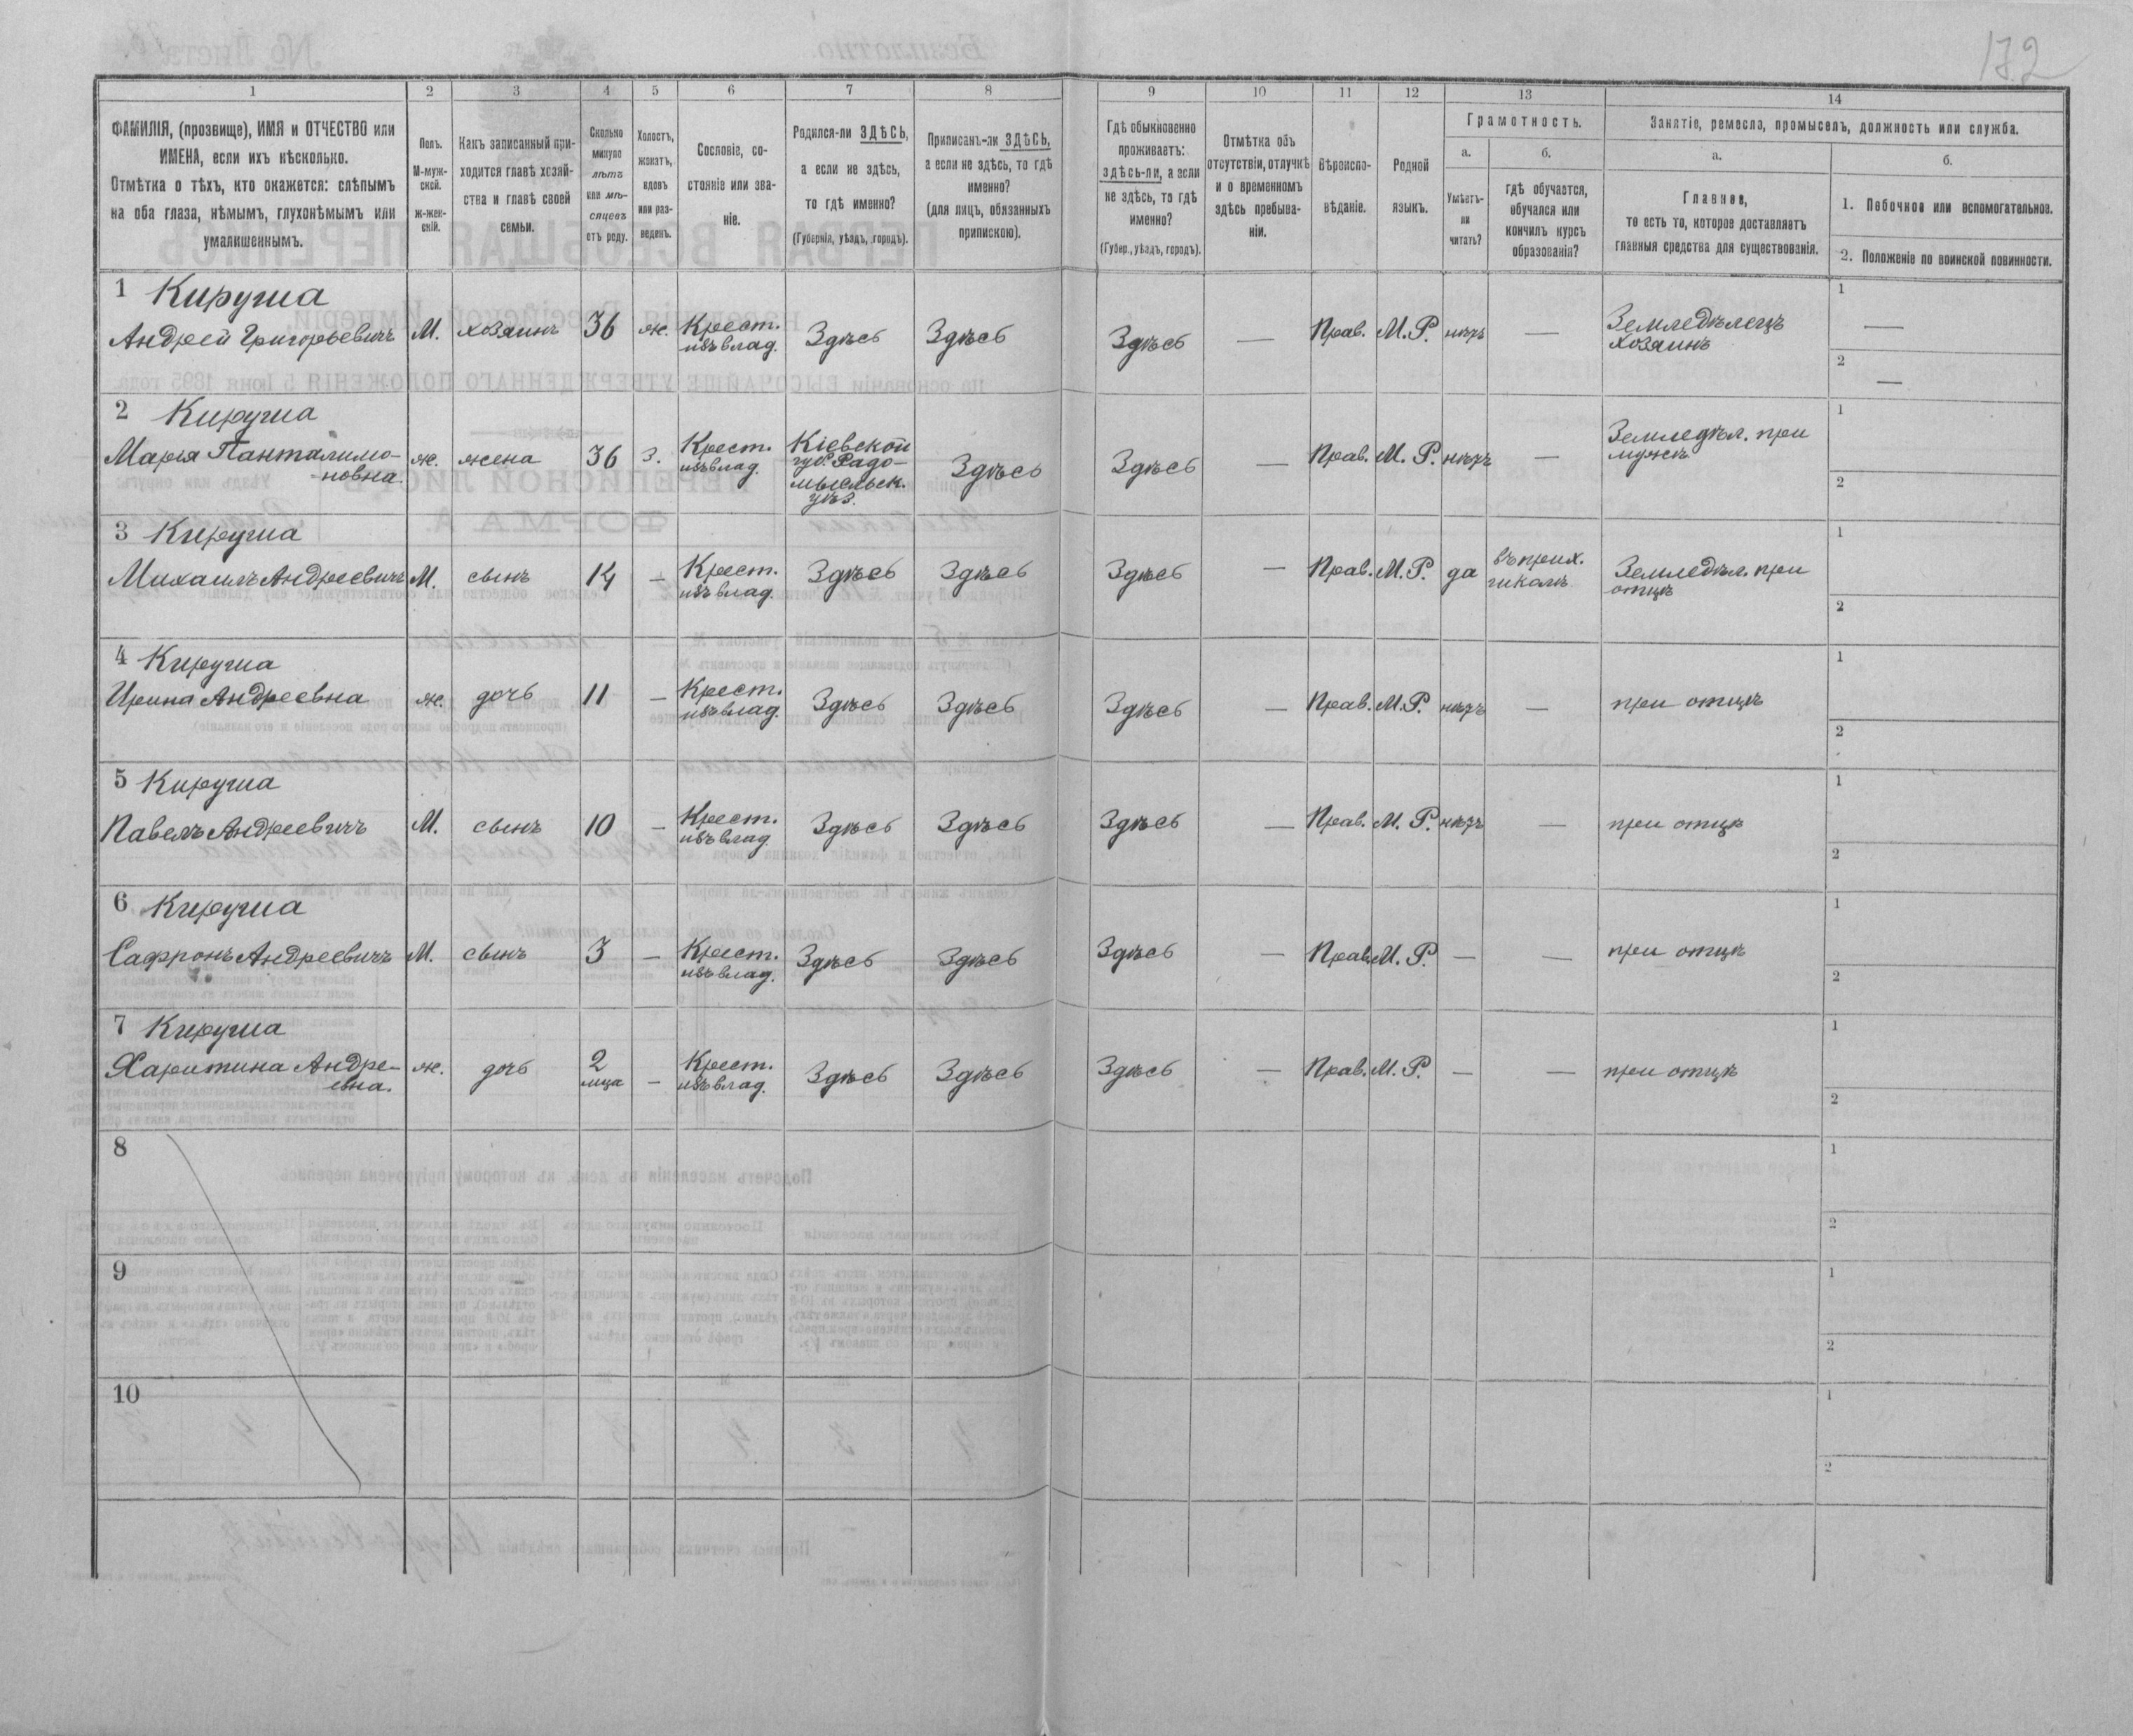 172
1 2 3 4 5 6 7 8 9 10 11 12 13 14
ФАМИЛІЯ, (прозвище), ИМЯ и ОТЧЕСТВО или
ИМЕНА, если ихъ нѣсколько.
Отмѣтка о тѣхъ, кто окажется: слѣпымъ
на оба глаза, нѣмымъ, глухонѣмымъ или
умалишеннымъ.
Полъ.
М-муж-
ской.
Ж-жен-
скій.
Какъ записанный при-
ходится главѣ хозяй-
ства и главѣ своей
семьи.
Сколько
минуло
лѣтъ
или мѣ-
сяцевъ
отъ роду.
Холостъ,
женатъ,
вдовъ
или раз-
веденъ.
Сословіе, со-
стояніе или зва-
ніе.
Родился-ли ЗДѢСЬ,
а если не здѣсь,
то гдѣ именно?
(Губернія, уѣздъ, городъ).
Приписанъ-ли ЗДѢСЬ,
а если не здѣсь, то гдѣ
именно?
(для лицъ, обязанныхъ
припискою).
Гдѣ обыкновенно
проживаетъ:
здѣсь-ли, а если
не здѣсь, то гдѣ
именно?
(Губер., уѣздъ, городъ).
Отмѣтка объ
отсутствіи, отлучкѣ
и о временномъ
здѣсь пребыва-
ніи.
Вѣроиспо-
вѣданіе.
Родной
языкъ.
Грамотность.
а.
Умѣетъ-
ли
читать?
б.
гдѣ обучается,
обучался или
кончилъ курсъ
образованія?
Занятіе, ремесло, промыселъ, должность или служба.
а.
Главное,
то есть то, которое доставляетъ
главныя средства для существованія.
б.
1. Побочное или вспомогательное.
2. Положеніе по воинской повинности.
1 Кируша
Андрей Григорьевичъ М. хозяинъ 36 ж. Крест. Здѣсь Здѣсь Здѣсь — Прав. М. Р. нѣтъ — Земледѣлецъ 1 —
изъ влад. хозяинъ 2 —
2 Кируша
Марія Панталимо- ж. жена 36 з. Крест. Кіевской Здѣсь Здѣсь — Прав. М. Р. нѣтъ — Земледѣл. при 1
новна. изъ влад. губ. Радо- мужѣ 2
мысльск.
уѣз.
3 Кируша
Михаилъ Андреевичъ М. сынъ 14 — Крест. Здѣсь Здѣсь Здѣсь — Прав. М. Р. да въ прих. Земледѣл. при 1
изъ влад. школѣ отцѣ 2
4 Кируша
Ирина Андреевна ж. дочь 11 — Крест. Здѣсь Здѣсь Здѣсь — Прав. М. Р. нѣтъ — при отцѣ 1
изъ влад. 2
5 Кируша
Павелъ Андреевичъ М. сынъ 10 — Крест. Здѣсь Здѣсь Здѣсь — Прав. М. Р. нѣтъ — при отцѣ 1
изъ влад. 2
6 Кируша
Сафронъ Андреевичъ М. сынъ 3 — Крест. Здѣсь Здѣсь Здѣсь — Прав. М. Р. — — при отцѣ 1
изъ влад. 2
7 Кируша
Харитина Андре- ж. дочь 2 — Крест. Здѣсь Здѣсь Здѣсь — Прав. М. Р. — — при отцѣ 1
евна. мца изъ влад. 2
8 1
2
9 1
2
10 1
2